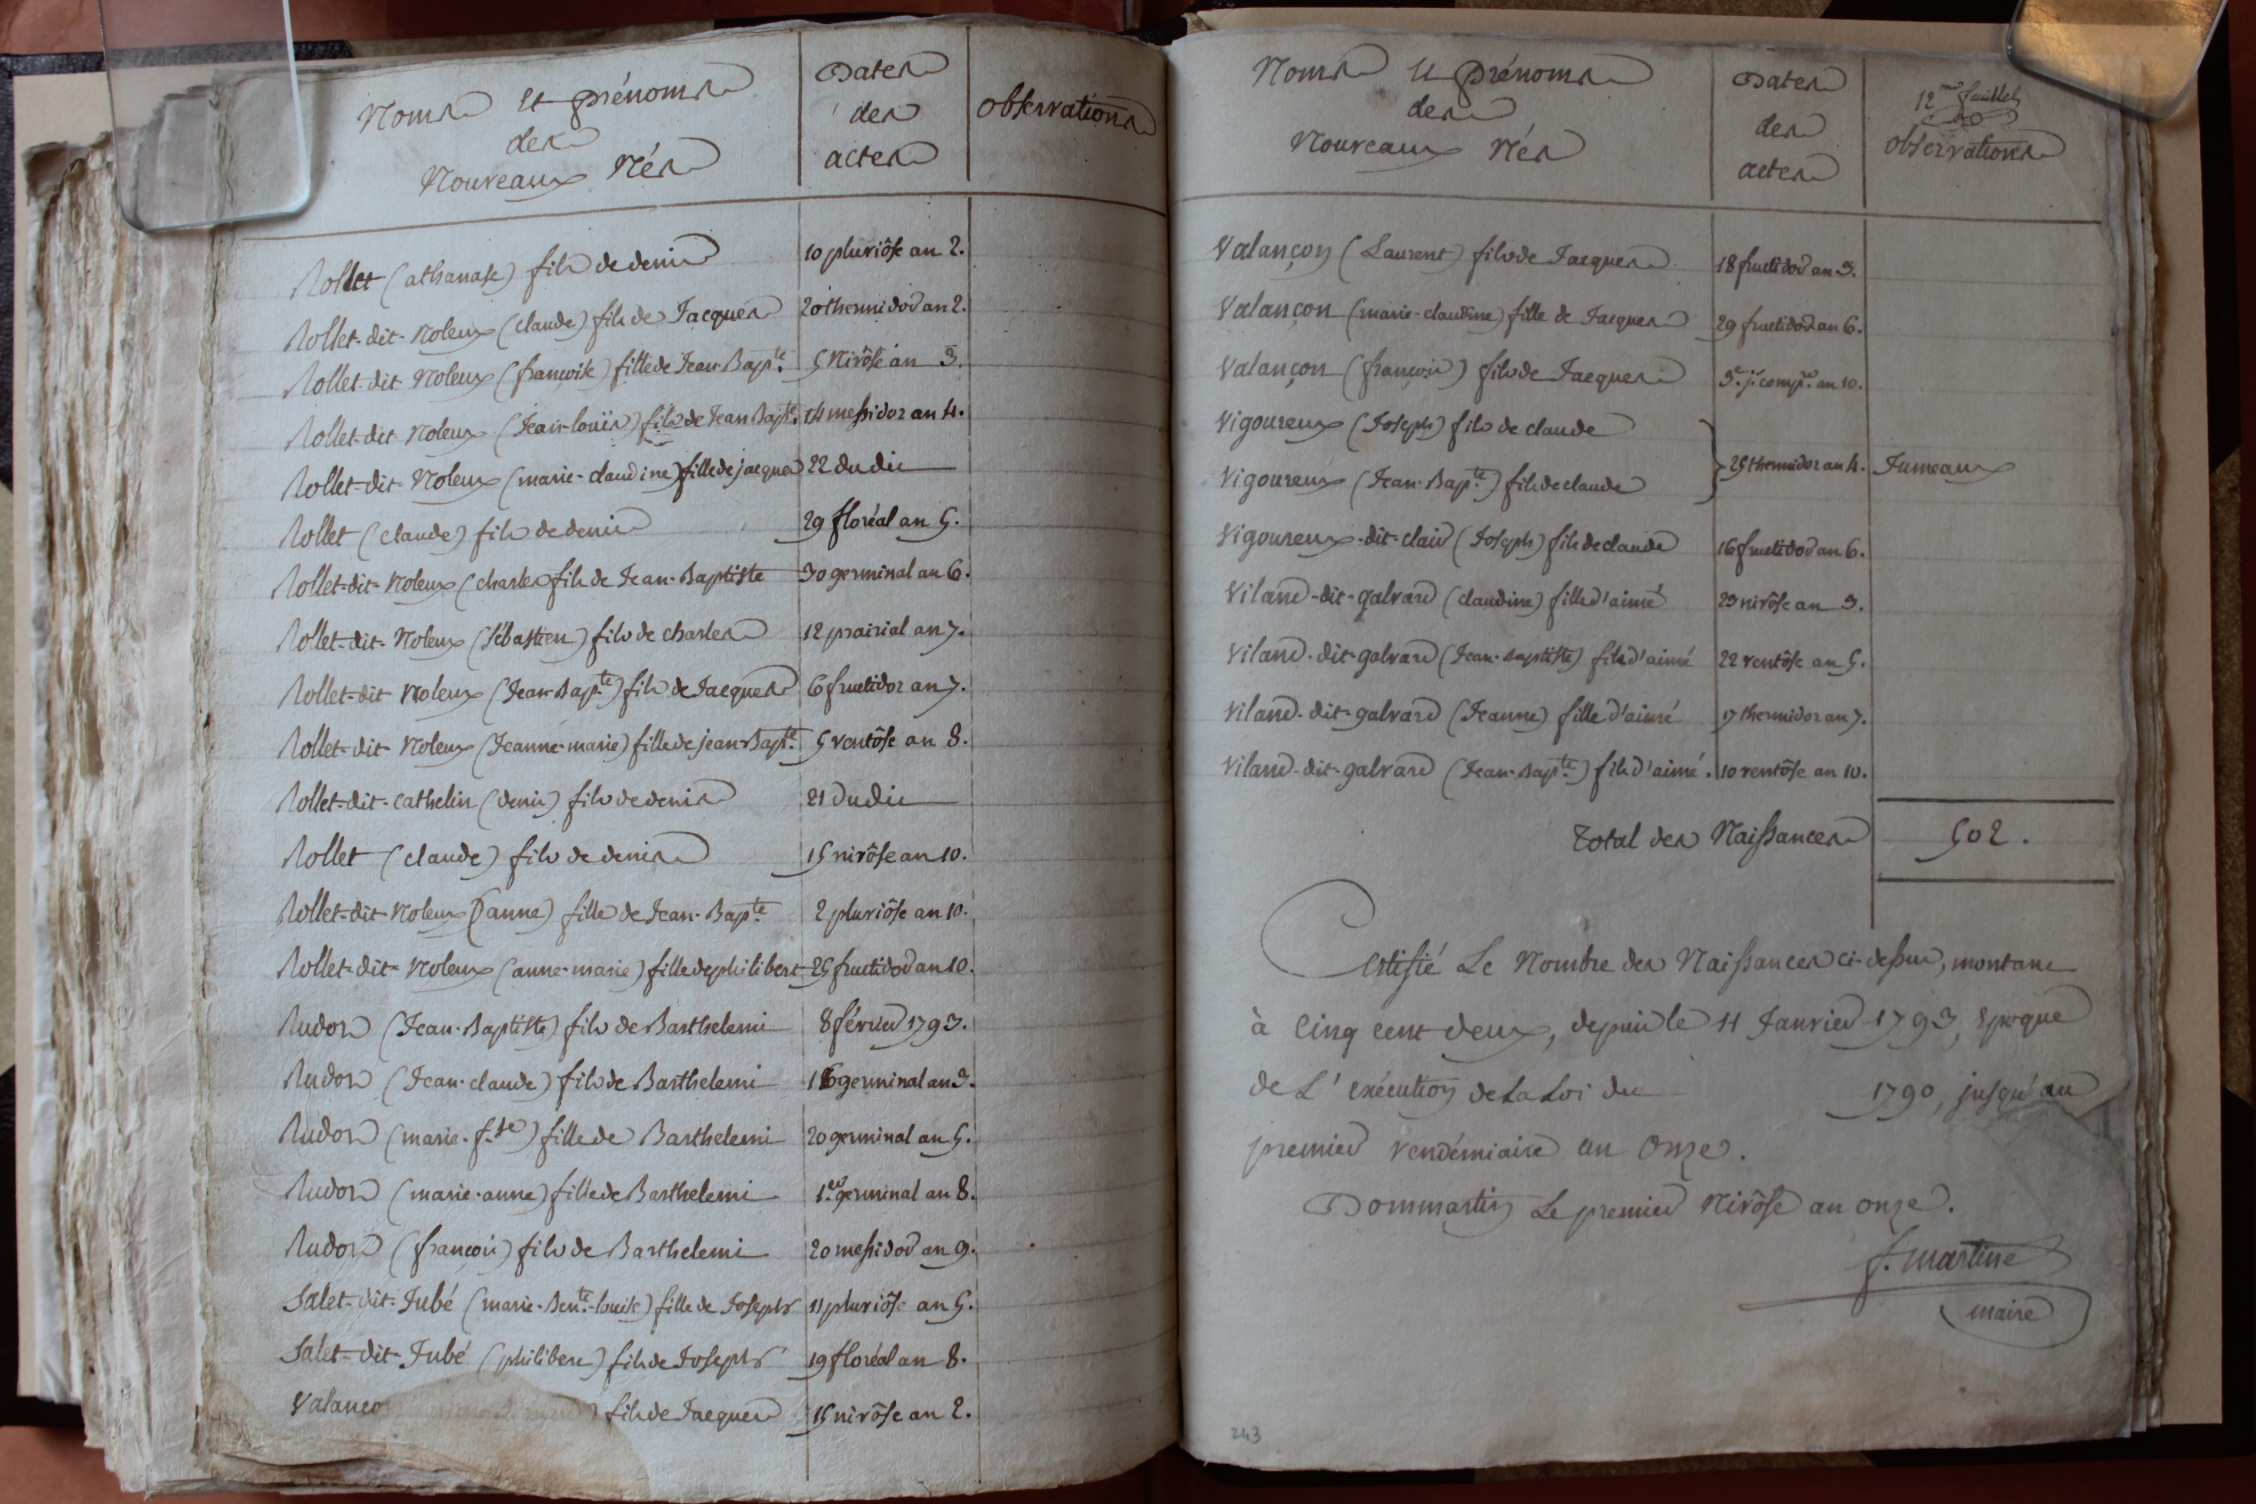 Noms et prénoms
des
Nouveaux Nés
Dates
des
actes
observations
Rollet (athanase) fils de denis 10 pluviôse an 2.
Rollet-dit-Noleux (claude) fils de Jacques 20 thermidor an 2.
Rollet-dit-Noleux (françoise) fille de Jean-Bapte. 5 Nivôse an 3.
Rollet-dit-Noleux (Jean-louis) fils de Jean Bapte. 14 messidor an 4.
Rollet-dit-Noleux (marie-claudine) fille de jacques 22 dudit
Rollet (claude) fils de denis 29 floréal an 5.
Rollet-dit-Noleux (charles fils de Jean-Baptiste 30 germinal an 6.
Rollet-dit-Noleux (sébastien) fils de charles 12 prairial an 7.
Rollet-dit Noleux (Jean-Bapte.) fils de Jacques 6 fructidor an 7.
Rollet-dit-Noleux (Jeanne-marie) fille de jean-Bapte. 5 ventôse an 8.
Rollet-dit-cathelin (denis) fils de denis 21 dudit
Rollet (claude) fils de denis 15 nivôse an 10.
Rollet-dit-Noleux (anne) fille de Jean-Bapte. 2 pluviôse an 10.
Rollet-dit-Noleux (anne-marie) fille de philibert 25 fructidor an 10.
Rudor (Jean-Baptiste) fils de Barthelemi 8 février 1793.
Rudor (Jean-claude) fils de Barthelemi 16 germinal an 3.
Rudor (marie-f.se) fille de Barthelemi 20 germinal an 5.
Rudor (marie-anne) fille de Barthelemi 1.er germinal an 8.
Rudor (françois) fils de Barthelemi 20 messidor an 9.
Salet-dit-Jubé (marie-Bente.-louise) fille de Joseph 11 pluviôse an 5.
Salet-dit-Jubé (philibert) fils de Joseph 19 floréal an 8.
Valanço ) fils de Jacques 15 nivôse an 2.
Noms et prénoms
des
Nouveaux Nés
Dates
des
actes
12me feuillet
observations
Valançon (Laurent) fils de Jacques 18 fructidor an 3.
Valançon (marie-claudine) fille de Jacques 29 fructidor an 6.
Valançon (françois) fils de Jacques 3.e j.r comp.re an 10.
Vigoureux (Joseph) fils de claude
Vigoureux (Jean-Bapte.) fils de claude 25 thermidor an 4. Jumeaux
Vigoureux-dit-clair (Joseph) fils de claude 16 fructidor an 6.
Viland-dit-galvard (claudine) fille d'aimé 23 nivôse an 3.
Viland-dit-galvard (Jean-Baptiste) fils d'aimé 22 ventôse an 5.
Viland-dit-galvard (Jeanne) fille d'aimé 17 thermidor an 7.
Viland-dit-galvard (Jean-Bapte.) fils d'aimé. 10 ventôse an 10.
Total des Naissances 502.
Certifié Le Nombre des Naissances ci-dessus, montant
à Cinq cent deux, depuis le 11 Janvier 1793, Epoque
de L'exécution de La Loi du 1790, jusqu'au
premier vendémiaire an Onze.
Dommartin Le premier Nivôse an onze.
f. martine
maire
243